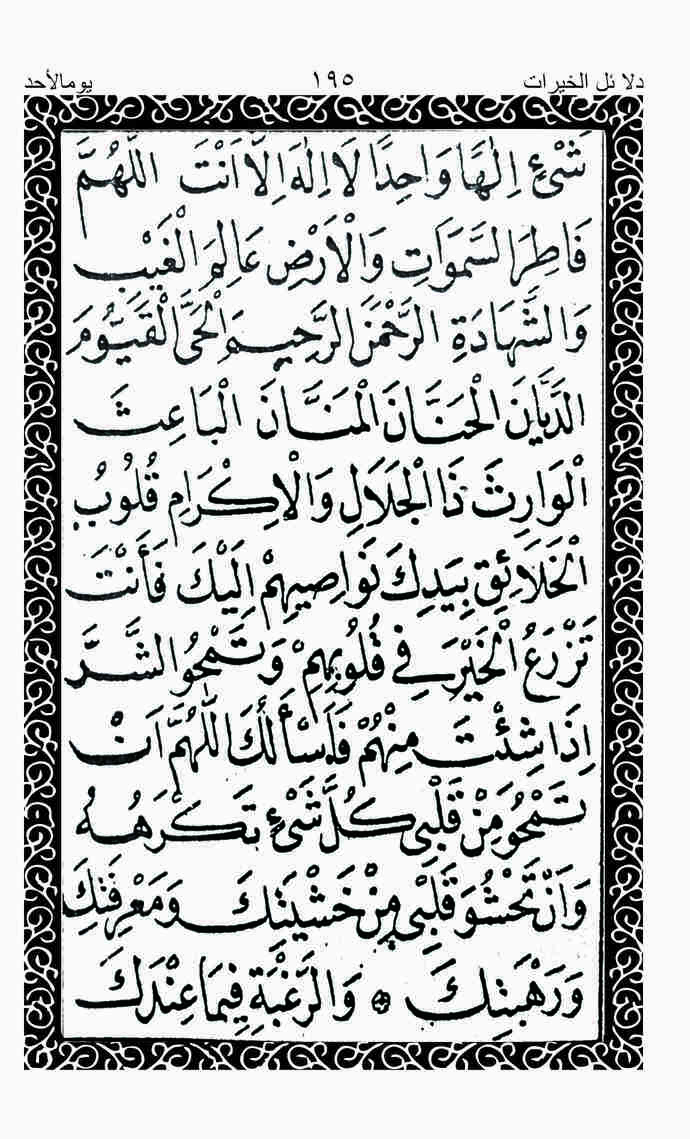 دلا ئل الخيرات ١٩٥ يومالأحد
شَیْءٍ اِلٰهًا وَاحِدًا لَا اِلٰهَ اِلَّا اَنْتَ اَللّٰهُمَّ
فَاطِرَ السَّمَوَاتِ وَالْاَرْضِ عَالِمَ الْغَيْبِ
وَالشَّهَادَةِ الرَّحْمٰنَ الرَّحِيمَ الْحَیَّ الْقَيُّومَ
الدَّيَّانَ الْحَنَّانَ الْمَنَّانَ الْبَاعِثَ
الْوَارِثَ ذَا الْجَلَالِ وَالْاِكْرَامِ قُلُوبُ
الْخَلَائِقِ بِيَدِكَ نَوَاصِيهِمْ اِلَيْكَ فَأَنْتَ
تَزْرَعُ الْخَيْرَ فِي قُلُوبِهِمْ وَتَمْحُو الشَّرَّ
اِذَا شِئْتَ مِنْهُمْ فَاَسْأَلُكَ اللّٰهُمَّ اَنْ
تَمْحُوَ مِنْ قَلْبِی كُلَّ شَیْءٍ تَكْرَهُهُ
وَاَنْ تَحْشُوَ قَلْبِی مِنْ خَشْيَتِكَ وَمَعْرِفَتِكَ
وَرَهْبَتِكَ ۞ وَالرَّغْبَةِ فِيمَا عِنْدَكَ